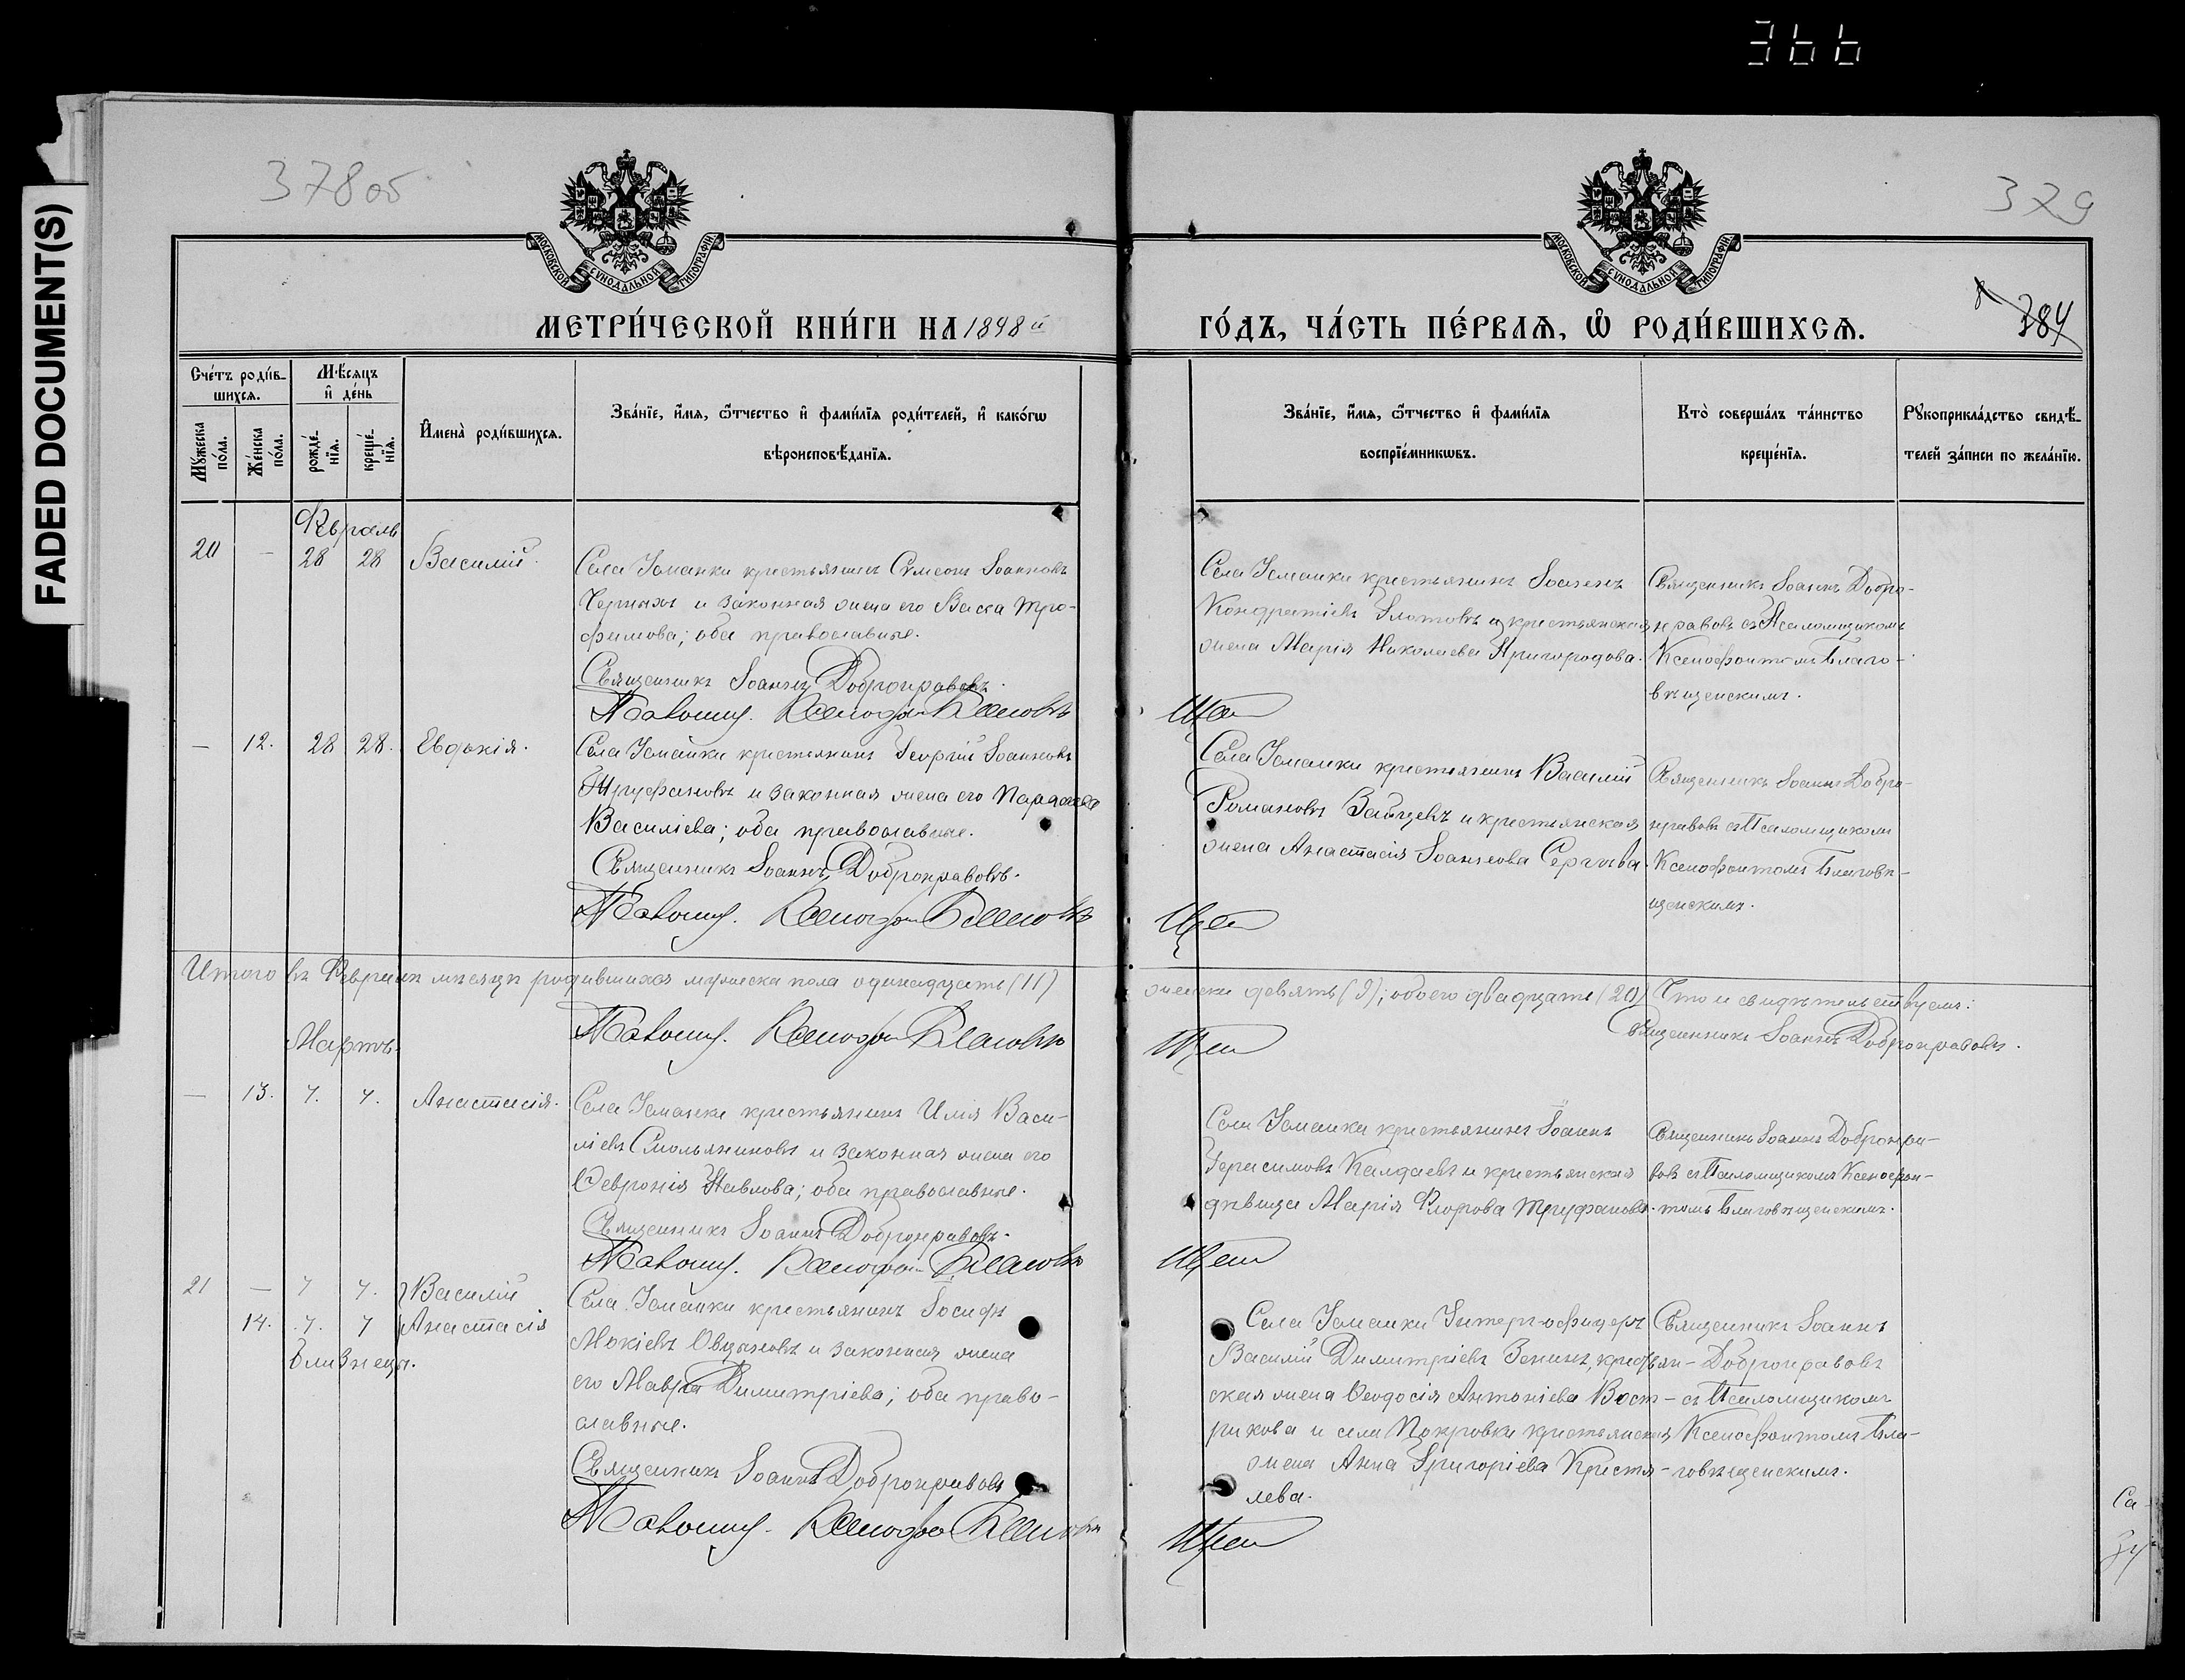 366
FADED DOCUMENT(S)
378об
379
384
МОСКОВСКОЙ СѴНОДАЛЬНОЙ ТИПОГРАФІИ
МОСКОВСКОЙ СѴНОДАЛЬНОЙ ТИПОГРАФІИ
МЕТРИ́ЧЕСКОЙ КНИ́ГИ НА 1898й
ГО́ДЪ, ЧА́СТЬ ПЕ́РВАѦ, Ѡ҆ РОДИ́ВШИХСѦ.
Сче́тъ роди́в-
шихсѧ.
Мѣ́сѧцъ
и҆ де́нь
Мꙋ́жеска
по́ла.
Же́нска
по́ла.
рожде́-
нїѧ.
креще́-
нїѧ.
И҆мена̀ роди́вшихсѧ.
Зва́нїе, и҆́мѧ, ѻ҆́тчество и҆ фами́лїѧ роди́телей, и҆ како́гѡ
вѣроисповѣ́данїѧ.
Зва́нїе, и҆́мѧ, ѻ҆́тчество и҆ фами́лїѧ
воспрїе́мникѡвъ.
Кто̀ соверша́лъ та́инство
креще́нїѧ.
Рꙋкоприкла́дство свидѣ́-
телей за́писи по жела́нїю.
Февраль
20 — 28 28 Василій.
Села Усманки крестьянинъ Сѵмеонъ Іоанновъ
Черныхъ и законная жена его Васса Тро-
фимова; оба православные.
Священникъ Іоаннъ Добронравовъ.
Села Усманки крестьянинъ Іоаннъ
Кондратіевъ Злотовъ и крестьянская
жена Марія Николаева Пригородова.
Священникъ Іоаннъ Добро-
нравовъ съ Псаломщикомъ
Ксенофонтомъ Благо-
вѣщенскимъ.
— 12. 28 28. Евдокія.
Села Усманки крестьянинъ Георгій Іоанновъ
Труфановъ и законная жена его Параскева
Василіева; оба православные.
Священникъ Іоаннъ Добронравовъ.
Села Усманки крестьянинъ Василій
Романовъ Зайцевъ и крестьянская
жена Анастасія Іоаннова Сергѣева.
Священникъ Іоаннъ Добро-
нравовъ съ Псаломщикомъ
Ксенофонтомъ Благовѣ-
щенскимъ.
Итого въ Февралѣ мѣсяцѣ родившихся мужеска пола одинадцать (11)
женска девять (9); обоего двадцать (20) Что и свидѣтельствуемъ:
Священникъ Іоаннъ Добронравовъ.
Мартъ.
— 13. 7. 7. Анастасія.
Села Усманки крестьянинъ Илія Васи-
ліевъ Смольяниновъ и законная жена его
Ѳевронія Павлова; оба православные.
Священникъ Іоаннъ Добронравовъ.
Села Усманки крестьянинъ Іоаннъ
Герасимовъ Калдаевъ и крестьянская
дѣвица Марія Флорова Труфанова.
Священникъ Іоаннъ Добронра-
вовъ съ Псаломщикомъ Ксенофон-
томъ Благовѣщенскимъ.
21 — 7 7. Василій
14. 7. 7 Анастасія
близнецы.
Села Усманки крестьянинъ Іосифъ
Мокіевъ Овцыновъ и законная жена
его Мавра Димитріева; оба право-
славные.
Священникъ Іоаннъ Добронравовъ
Села Усманки Унтеръ-офицеръ
Василій Димитріевъ Зенинъ, крестьян-
ская жена Ѳеодосія Антоніева Вост-
рикова и села Покровки крестьянская
жена Анна Григоріева Кристя-
лева.
Священникъ Іоаннъ
Добронравовъ
съ Псаломщикомъ
Ксенофонтомъ Бла-
говѣщенскимъ.
Са